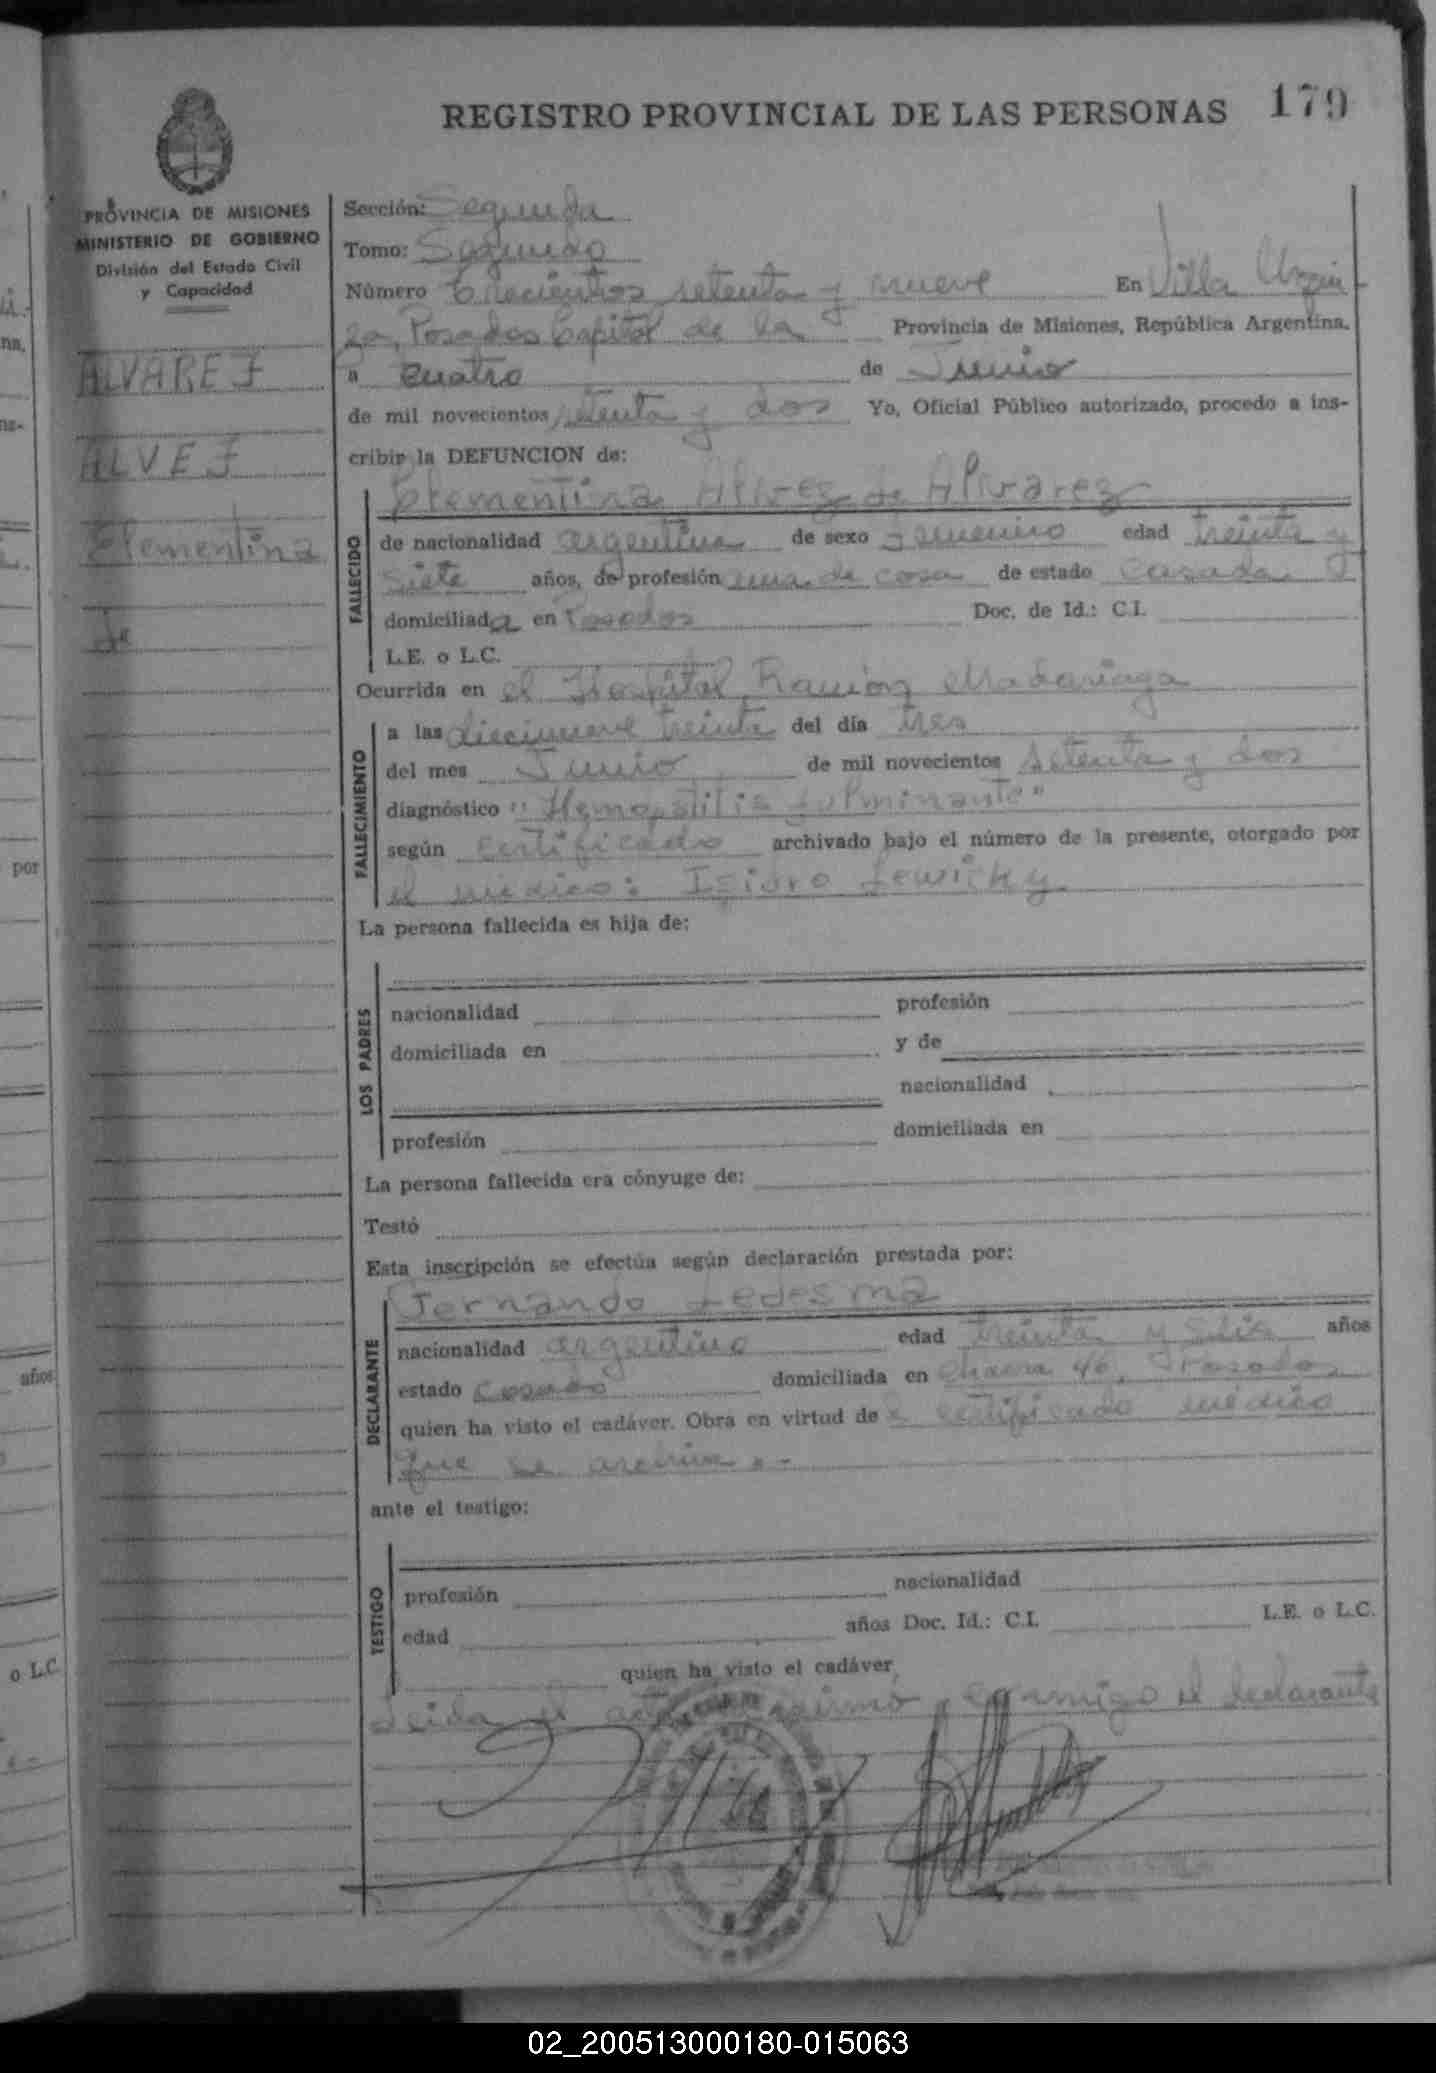 REGISTRO PROVINCIAL DE LAS PERSONAS 179
PROVINCIA DE MISIONES
MINISTERIO DE GOBIERNO
División del Estado Civil
y Capacidad
ALVAREZ
ALVEZ
Clementina
de
Sección: Segunda
Tomo: Segundo
Número trecientos setenta y nueve En Villa Urqui
za, Posadas Capital de la Provincia de Misiones, República Argentina,
a cuatro de Junio
de mil novecientos setenta y dos Yo, Oficial Público autorizado, procedo a ins-
cribir la DEFUNCION de:
Clementina Alvez de Alvarez
FALLECIDO
de nacionalidad argentina de sexo femenino edad treinta y
siete años, de profesión ama de casa de estado casada
domiciliada en Posadas Doc. de Id.: C.I.
L.E. o L.C.
Ocurrida en el Hospital Ramón Madariaga
FALLECIMIENTO
a las diecinueve treinta del día tres
del mes Junio de mil novecientos setenta y dos
diagnóstico "Hemopstitis fulminante"
según certificado archivado bajo el número de la presente, otorgado por
el médico: Isidro Lewicky
La persona fallecida es hija de:
LOS PADRES
nacionalidad profesión
domiciliada en y de
nacionalidad
profesión domiciliada en
La persona fallecida era cónyuge de:
Testó
Esta inscripción se efectúa según declaración prestada por:
Fernando Ledesma
DECLARANTE
nacionalidad argentino edad treinta y seis años
estado casado domiciliada en chacra 46, Posadas
quien ha visto el cadáver. Obra en virtud de certificado médico
que se archiva.-
ante el testigo:
TESTIGO
profesión nacionalidad
edad años Doc. Id.: C.I. L.E. o L.C.
quien ha visto el cadáver,
Leida el acta firmó conmigo el declarante
por
años
o L.C
02_200513000180-015063